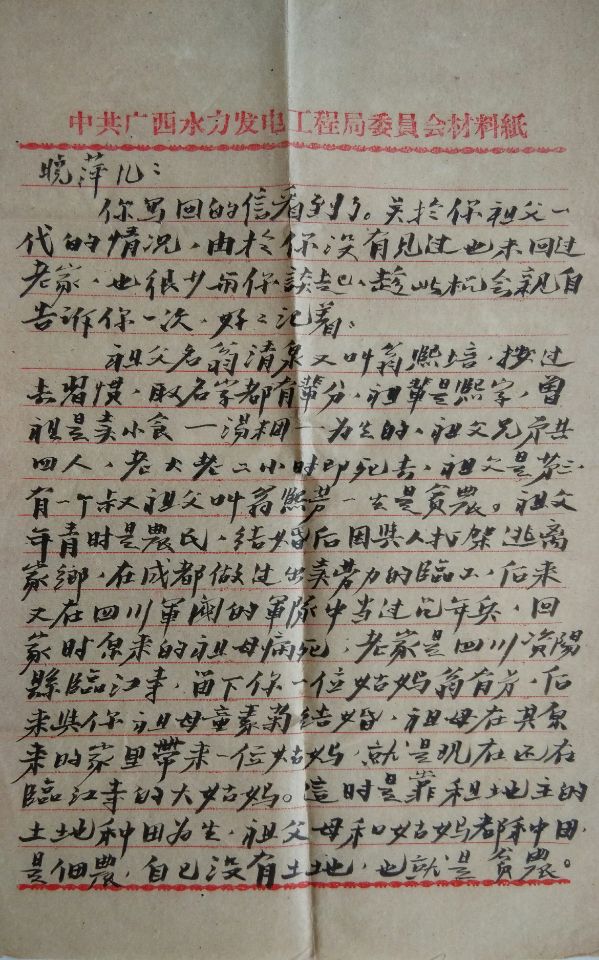 中共广西水力发电工程局委員会材料紙
晓萍儿：
你写回的信看到了。关於你祖父一
代的情况，由於你没有见过也未回过
老家，也很少与你談起，趁此机会親自
告诉你一次，好好记着：
祖父名翁清泉又叫翁熙培，按过
去習惯，取名字都有輩分，祖輩是熙字，曾
祖是卖小食—湯
为生的，祖父兄弟共
四人，老大老二小时即死去，祖父是第三
有一个叔祖父叫翁熙芳一生是貧農。祖父
年青时是農民，结婚后因與人打架逃离
家鄉，在成都做过出卖劳力的臨工，后来
又在四川軍閥的軍隊中当过几年兵，回
家时原来的祖母病死，老家是四川资陽
縣臨江寺，留下你一位姑妈翁有芳，后
来與你祖母童素菊结婚，祖母在其原
来的家里带来一位姑妈，就是现在还在
臨江寺的大姑妈。這时是靠租地主的
土地种田为生，祖父母和姑妈都种田，
是佃農，自己没有土地，也就是貧農。